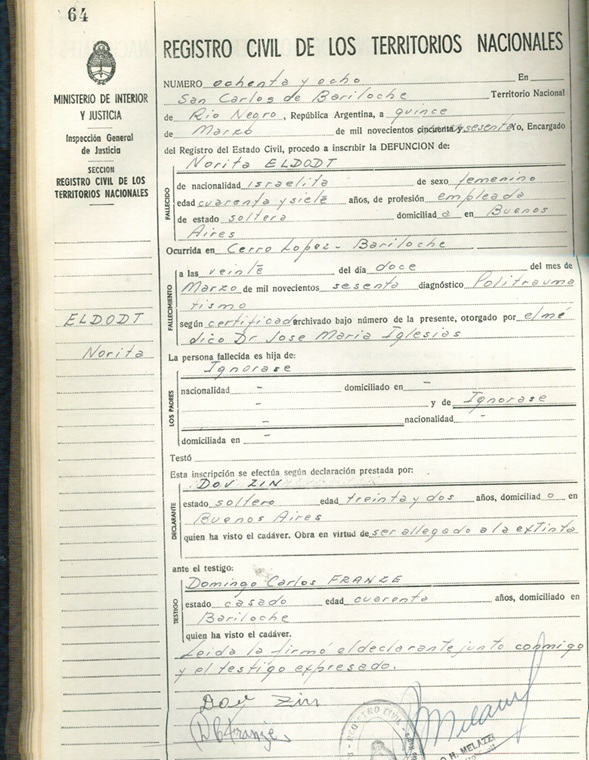 64
MINISTERIO DE INTERIOR
Y JUSTICIA
Inspección General
de Justicia
SECCION
REGISTRO CIVIL DE LOS
TERRITORIOS NACIONALES
ELDODT
Norita
REGISTRO CIVIL DE LOS TERRITORIOS NACIONALES
NUMERO ochenta y ocho En
San Carlos de Bariloche Territorio Nacional
de Rio Negro, República Argentina, a quince
de Marzo de mil novecientos cincuenta y sesenta Yo, Encargado
del Registro del Estado Civil, procedo a inscribir la DEFUNCION de:
Norita ELDODT
FALLECIDO
de nacionalidad israelita de sexo femenino
edad cuarenta y siete años, de profesión empleada
de estado soltera domiciliad a en Buenos
Aires
Ocurrida en Cerro Lopez - Bariloche
FALLECIMIENTO
a las veinte del día doce del mes de
Marzo de mil novecientos sesenta diagnóstico Politrauma
tismo
según certificado archivado bajo número de la presente, otorgado por el mé
dico Dr Jose Maria Iglesias
La persona fallecida es hija de:
Ignorase
LOS PADRES
nacionalidad - domiciliado en -
- y de Ignorase
- nacionalidad -
domiciliada en -
Testó
Esta inscripción se efectúa según declaración prestada por:
DOV ZIN
DECLARANTE
estado soltero edad treinta y dos años, domiciliad o en
Buenos Aires
quien ha visto el cadáver. Obra en virtud de ser allegado a la extinta
ante el testigo:
Domingo Carlos FRANZE
TESTIGO
estado casado edad cuarenta años, domiciliado en
Bariloche
quien ha visto el cadáver.
Leida la firmó el declarante junto conmigo
y el testigo expresado.
Dov Zin
REGISTRO CIVIL
H. MELAZZI